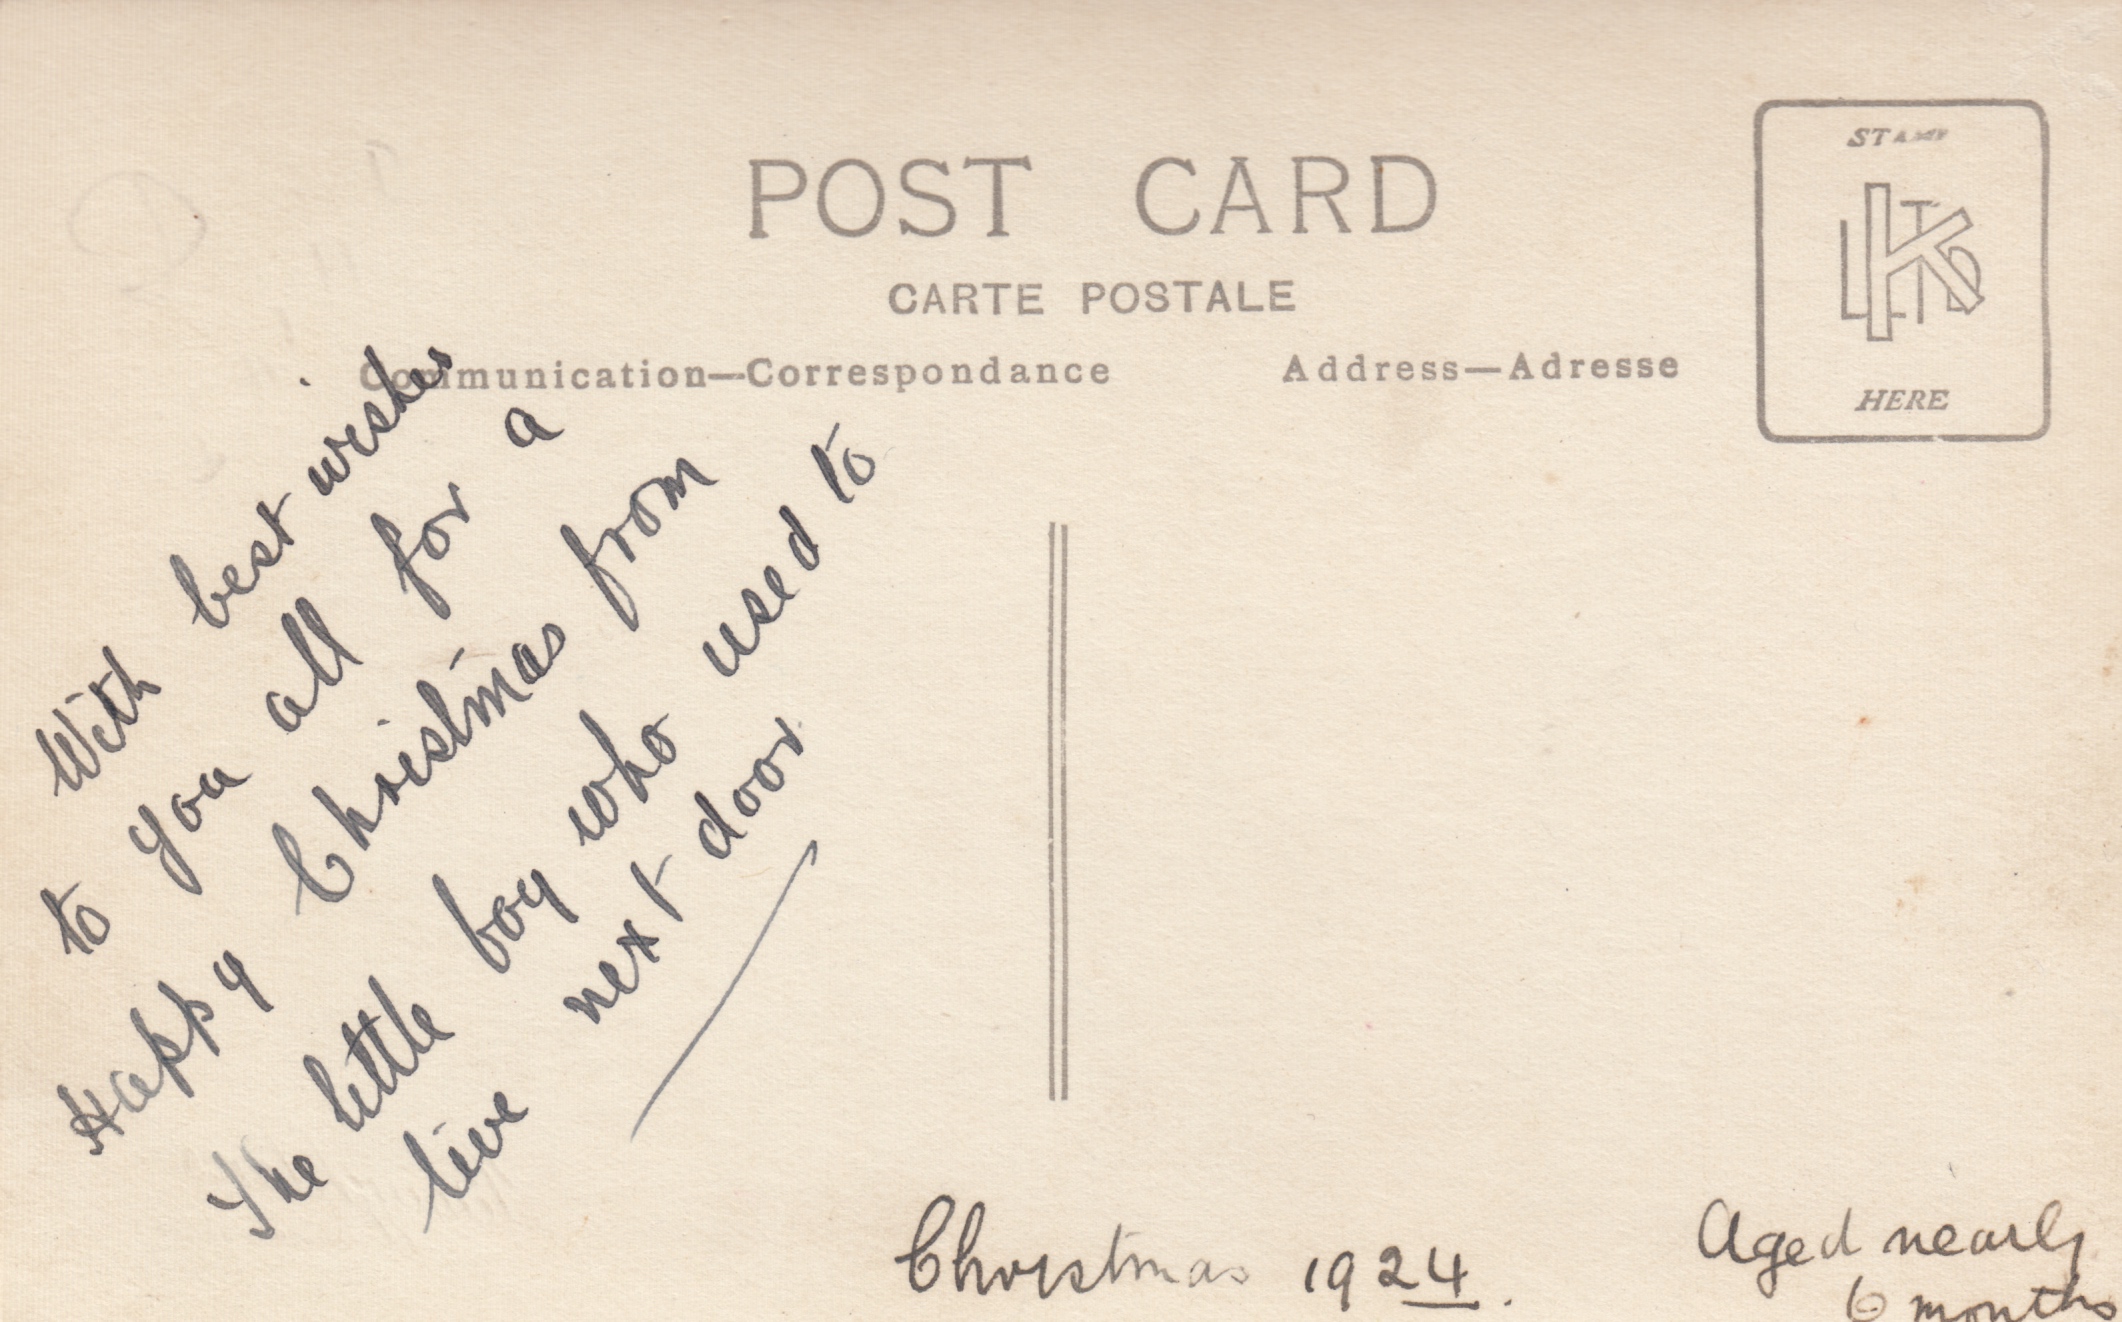 POST CARD
CARTE POSTALE
Communication—Correspondance
Address—Adresse
STAMP
K LTD
HERE
With best wishes
to you all for a
Happy Christmas from
The little boy who used to
live next door
Christmas 1924.
Aged nearly
6 months